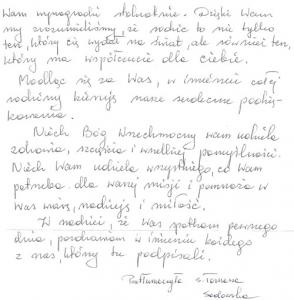 Wam wynagrodzi stokrotnie. Dzięki Wam
my zrozumieliśmy, że rodzic to nie tylko
ten, który cię wydał na świat, ale również ten,
który ma współczucie dla ciebie.
Modląc się za Was, w imieniu całej
rodziny kieruję nasze serdeczne podzię-
kowania.
Niech Bóg Wszechmocny wam udziela
zdrowia, szczęścia i wszelkiej pomyślności.
Niech Wam udziela wszystkiego, co Wam
potrzeba dla waszej misji i pomnaża w
Was wiarę, nadzieję i miłość.
W nadziei, że Was spotkam pewnego
dnia, pozdrawiam w imieniu każdego
z nas, który tu podpisali.
Przetłumaczyła s. Tomasza
Sadowska